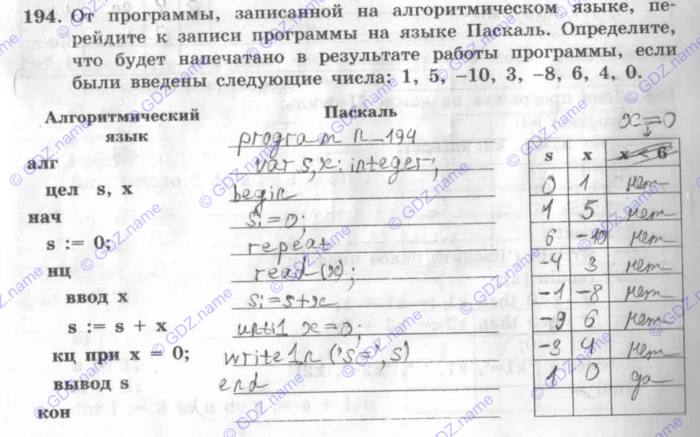 194. От программы, записанной на алгоритмическом языке, пе-
рейдите к записи программы на языке Паскаль. Определите,
что будет напечатано в результате работы программы, если
были введены следующие числа: 1, 5, –10, 3, –8, 6, 4, 0.
Алгоритмический
язык
алг
цел s, x
нач
s := 0;
нц
ввод x
s := s + x
кц при x = 0;
вывод s
кон
Паскаль
program n_194
var s,x: integer;
begin
s:=0;
repeat
read (x);
s:=s+x
until x=0;
writeln ('s=', s)
end
x=0
s x x < 6
0 1 нет
1 5 нет
6 -10 нет
-4 3 нет
-1 -8 нет
-9 6 нет
-3 4 нет
1 0 да
© GDZ.name